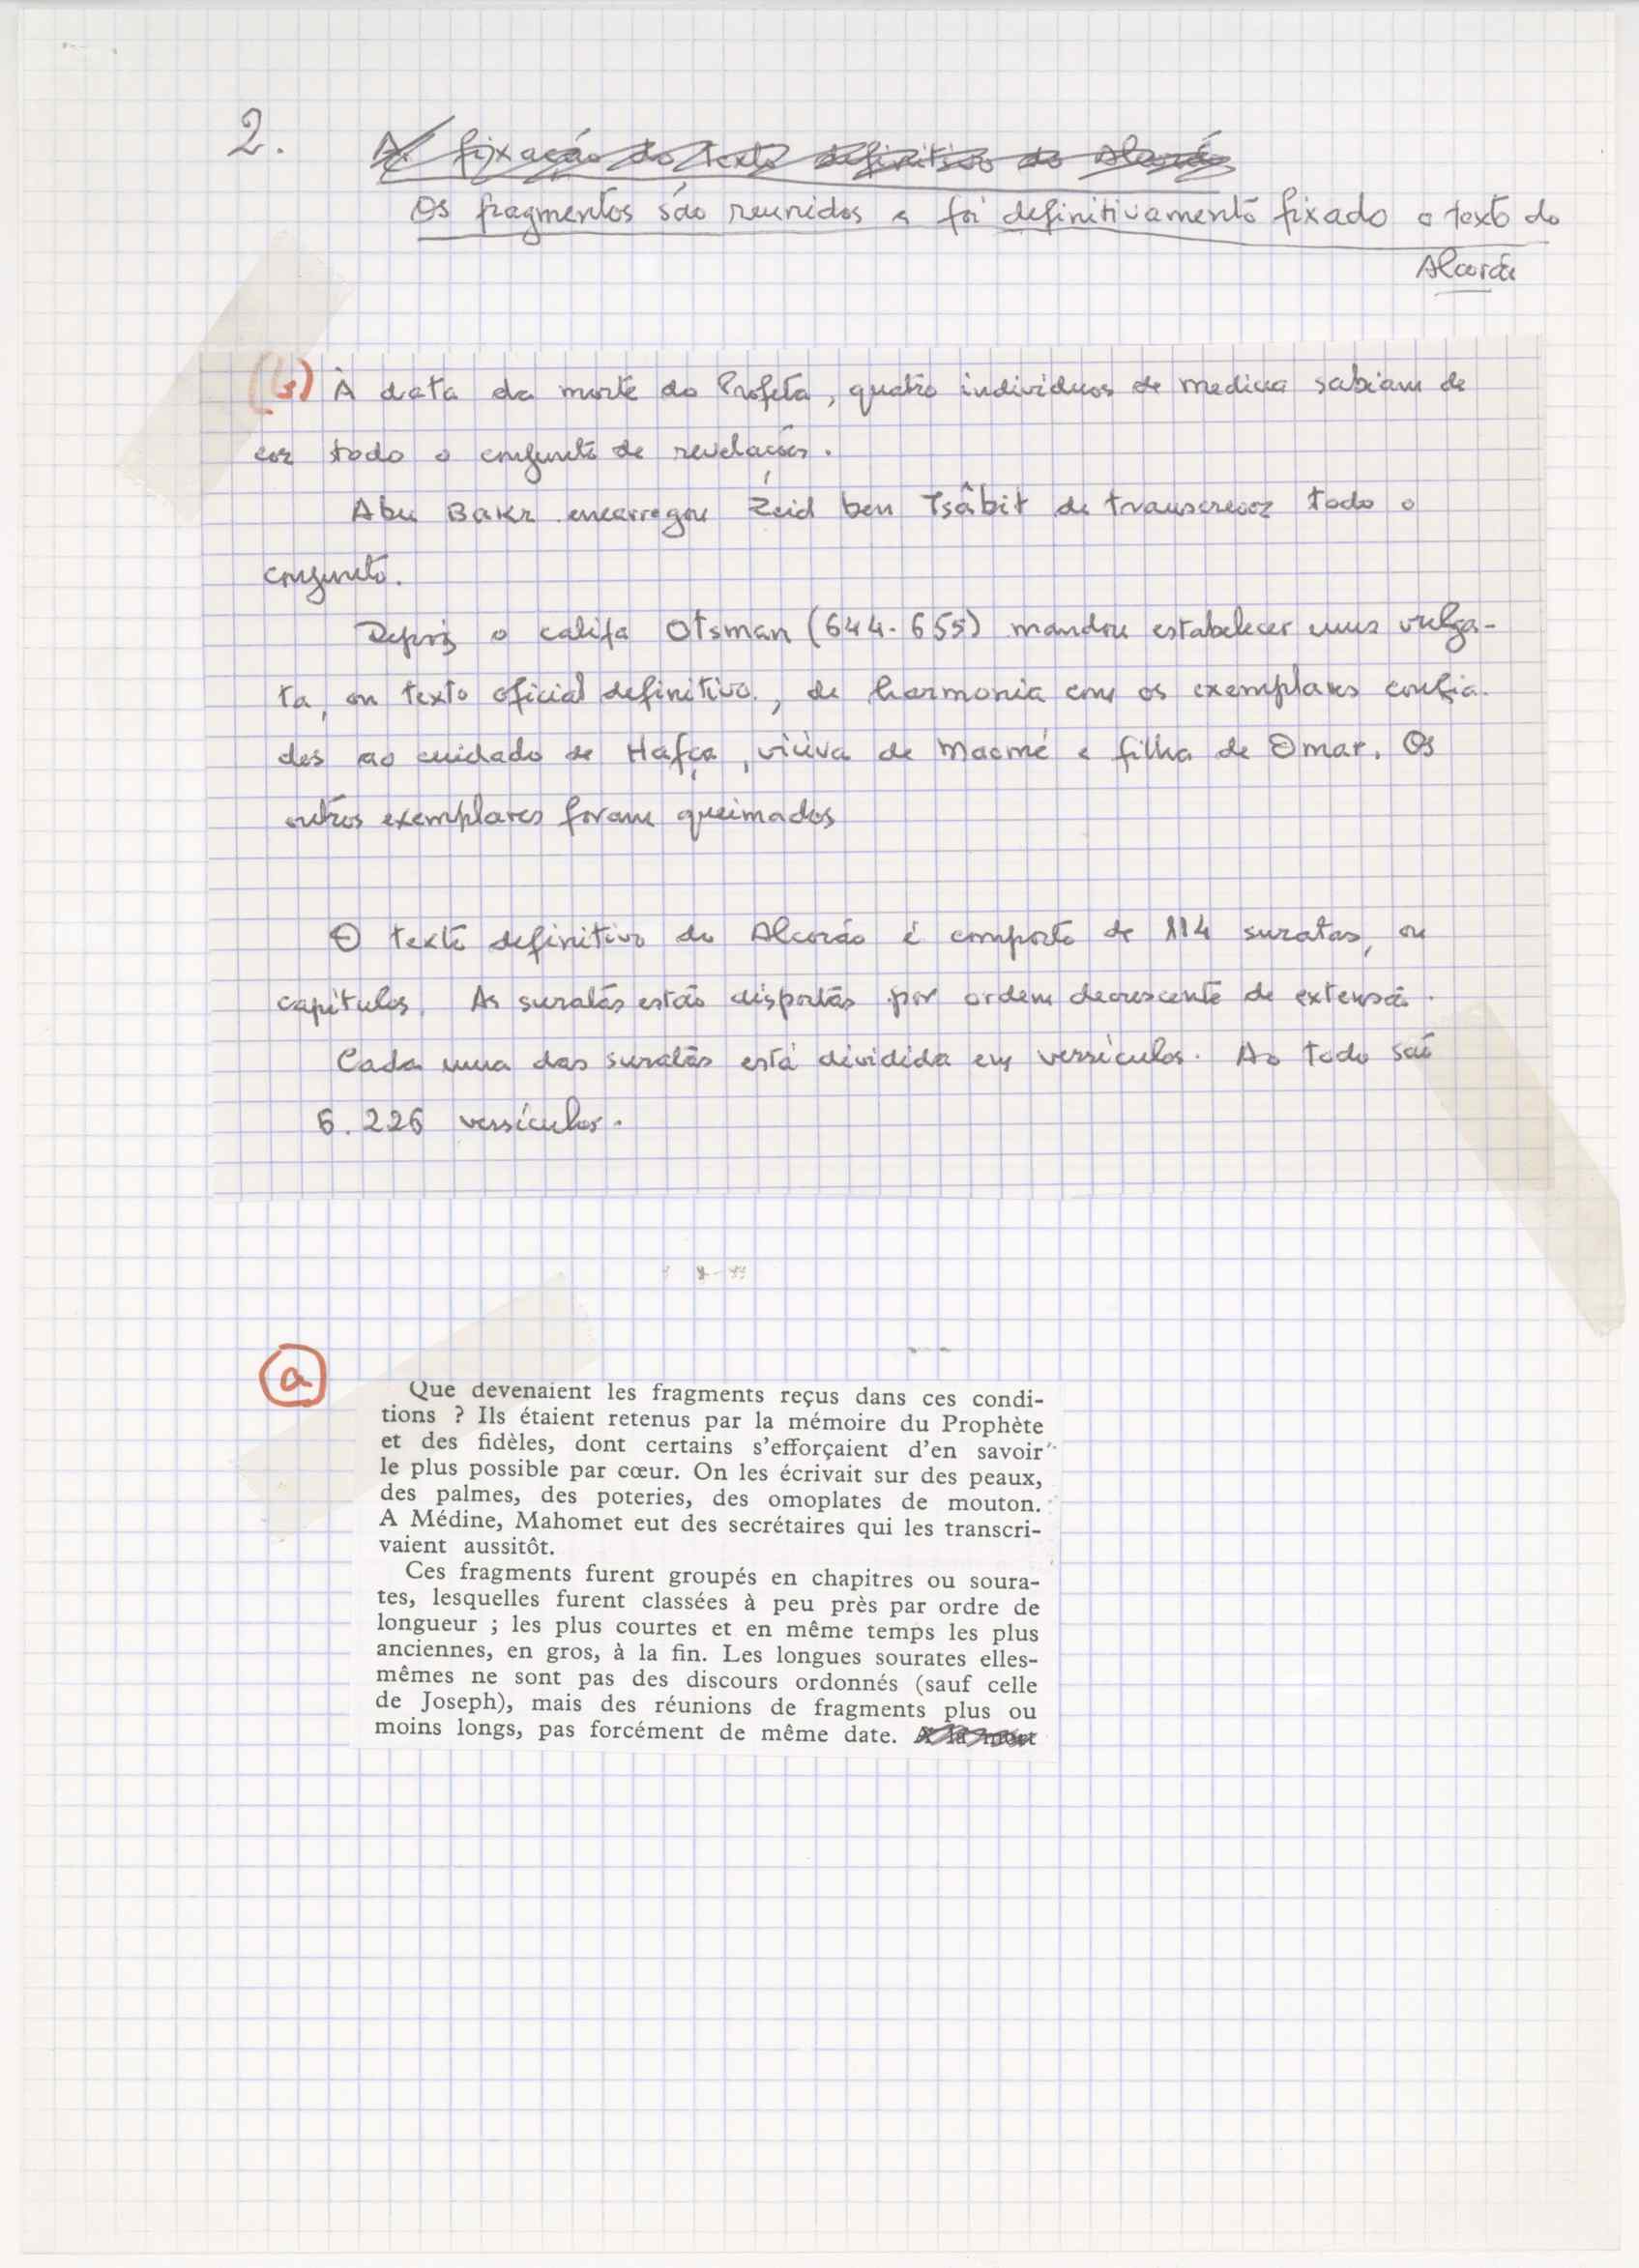 2. A fixação do texto definitivo do Alcorão
Os fragmentos são reunidos e foi definitivamente fixado o texto do
Alcorão
(b) À data da morte do Profeta, quatro individuos de medina sabiam de
cor todo o conjunto de revelações.
Abu Bakr encarregou Zéid ben Tsâbit de transcrever todo o
conjunto.
Depois o califa Otsman (644-655) mandou estabelecer uma vulga-
ta, ou texto oficial definitivo, de harmonia com os exemplares confia-
dos ao cuidado de Hafça, viúva de Maomé e filha de Omar. Os
outros exemplares foram queimados
O texto definitivo do Alcorão é composto de 114 suratas, ou
capítulos. As suratas estão dispostas por ordem decrescente de extensão.
Cada uma das suratas está dividida em versículos. Ao todo são
6.226 versículos.
a
Que devenaient les fragments reçus dans ces condi-
tions ? Ils étaient retenus par la mémoire du Prophète
et des fidèles, dont certains s'efforçaient d'en savoir
le plus possible par cœur. On les écrivait sur des peaux,
des palmes, des poteries, des omoplates de mouton.
A Médine, Mahomet eut des secrétaires qui les transcri-
vaient aussitôt.
Ces fragments furent groupés en chapitres ou soura-
tes, lesquelles furent classées à peu près par ordre de
longueur ; les plus courtes et en même temps les plus
anciennes, en gros, à la fin. Les longues sourates elles-
mêmes ne sont pas des discours ordonnés (sauf celle
de Joseph), mais des réunions de fragments plus ou
moins longs, pas forcément de même date. A la mort